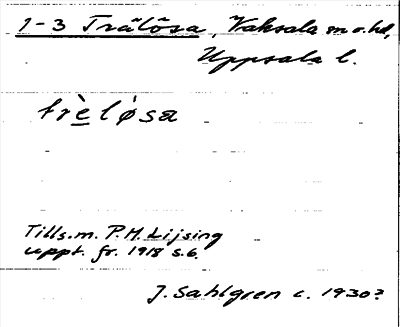 1-3 Trälösa, Vaksala sn o. hd,
Uppsala l.
trè̲lǿsa
Tills. m. P. H. Lijsing
uppt. fr. 1918 s. 6.
J. Sahlgren c. 1930?